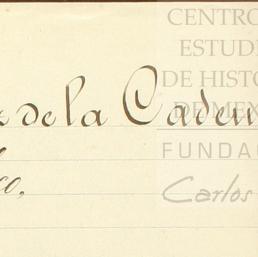 CENTRO
ESTUDI
DE HISTO
DE MEX
FUNDAC
Carlos
de la Caden
co,